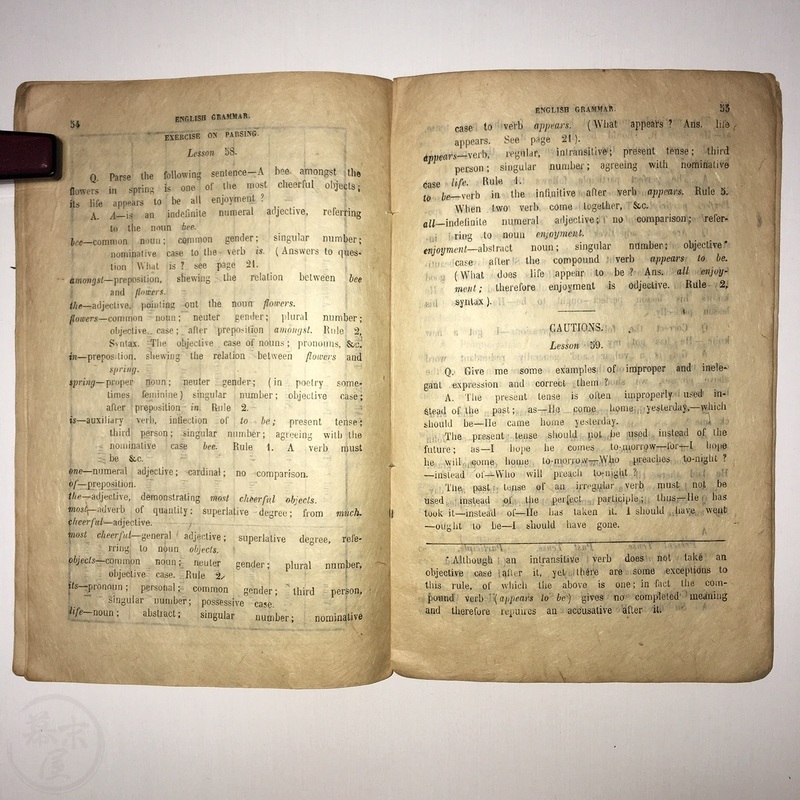 54
ENGLISH GRAMMAR.
EXERCISE ON PARSING.
Lesson 58.
Q. Parse the following sentence—A bee amongst the
flowers in spring is one of the most cheerful objects;
its life appears to be all enjoyment?
A. A—is an indefinite numeral adjective, referring
to the noun bee.
bee—common noun; common gender; singular number;
nominative case to the verb is. (Answers to ques-
tion What is? see page 21.
amongst—preposition, shewing the relation between bee
and flowers.
the—adjective, pointing out the noun flowers.
flowers—common noun; neuter gender; plural number;
objective case; after preposition amongst. Rule 2,
Syntax. The objective case of nouns; pronouns, &c.
in—preposition, shewing the relation between flowers and
spring.
spring—proper noun; neuter gender; (in poetry some-
times feminine) singular number; objective case;
after preposition in Rule 2.
is—auxiliary verb, inflection of to be; present tense;
third person; singular number; agreeing with the
nominative case bee. Rule 1. A verb must
be &c.
one—numeral adjective; cardinal; no comparison.
of—preposition.
the—adjective, demonstrating most cheerful objects.
most—adverb of quantity: superlative degree; from much.
cheerful—adjective.
most cheerful—general adjective; superlative degree, refe-
rring to noun objects.
objects—common noun; neuter gender; plural number,
objective case. Rule 2,
its—pronoun; personal; common gender; third person,
singular number; possessive case.
life—noun; abstract; singular number; nominative
ENGLISH GRAMMAR.
55
case to verb appears. (What appears? Ans. life
appears. See page 21).
appears—verb, regular, intransitive; present tense; third
person; singular number; agreeing with nominative
case life. Rule 1.
to be—verb in the infinitive after verb appears. Rule 5.
When two verb come together, &c.
all—indefinite numeral adjective; no comparison; refer-
ring to noun enjoyment.
enjoyment—abstract noun; singular number; objective*
case after the compound verb appears to be.
(What does life appear to be? Ans. all enjoy-
ment; therefore enjoyment is odjective. Rule 2,
syntax).
CAUTIONS.
Lesson 59.
Q. Give me some examples of improper and inele-
gant expression and correct them?
A. The present tense is often improperly used in-
stead of the past; as—He come home yesterday,—which
should be—He came home yesterday.
The present tense should not be used instead of the
future; as—I hope he comes to-morrow—for—I hope
he will come home to-morrow—Who preaches to-night?
—instead of—Who will preach to-night?
The past tense of an irregular verb must not be
used instead of the perfect participle; thus—He has
took it—instead of—He has taken it. I should have went
—ought to be—I should have gone.
* Although an intransitive verb does not take an
objective case after it, yet there are some exceptions to
this rule, of which the above is one; in fact the com-
pound verb (appears to be) gives no completed meaning
and therefore requires an accusative after it.
幕末
屋